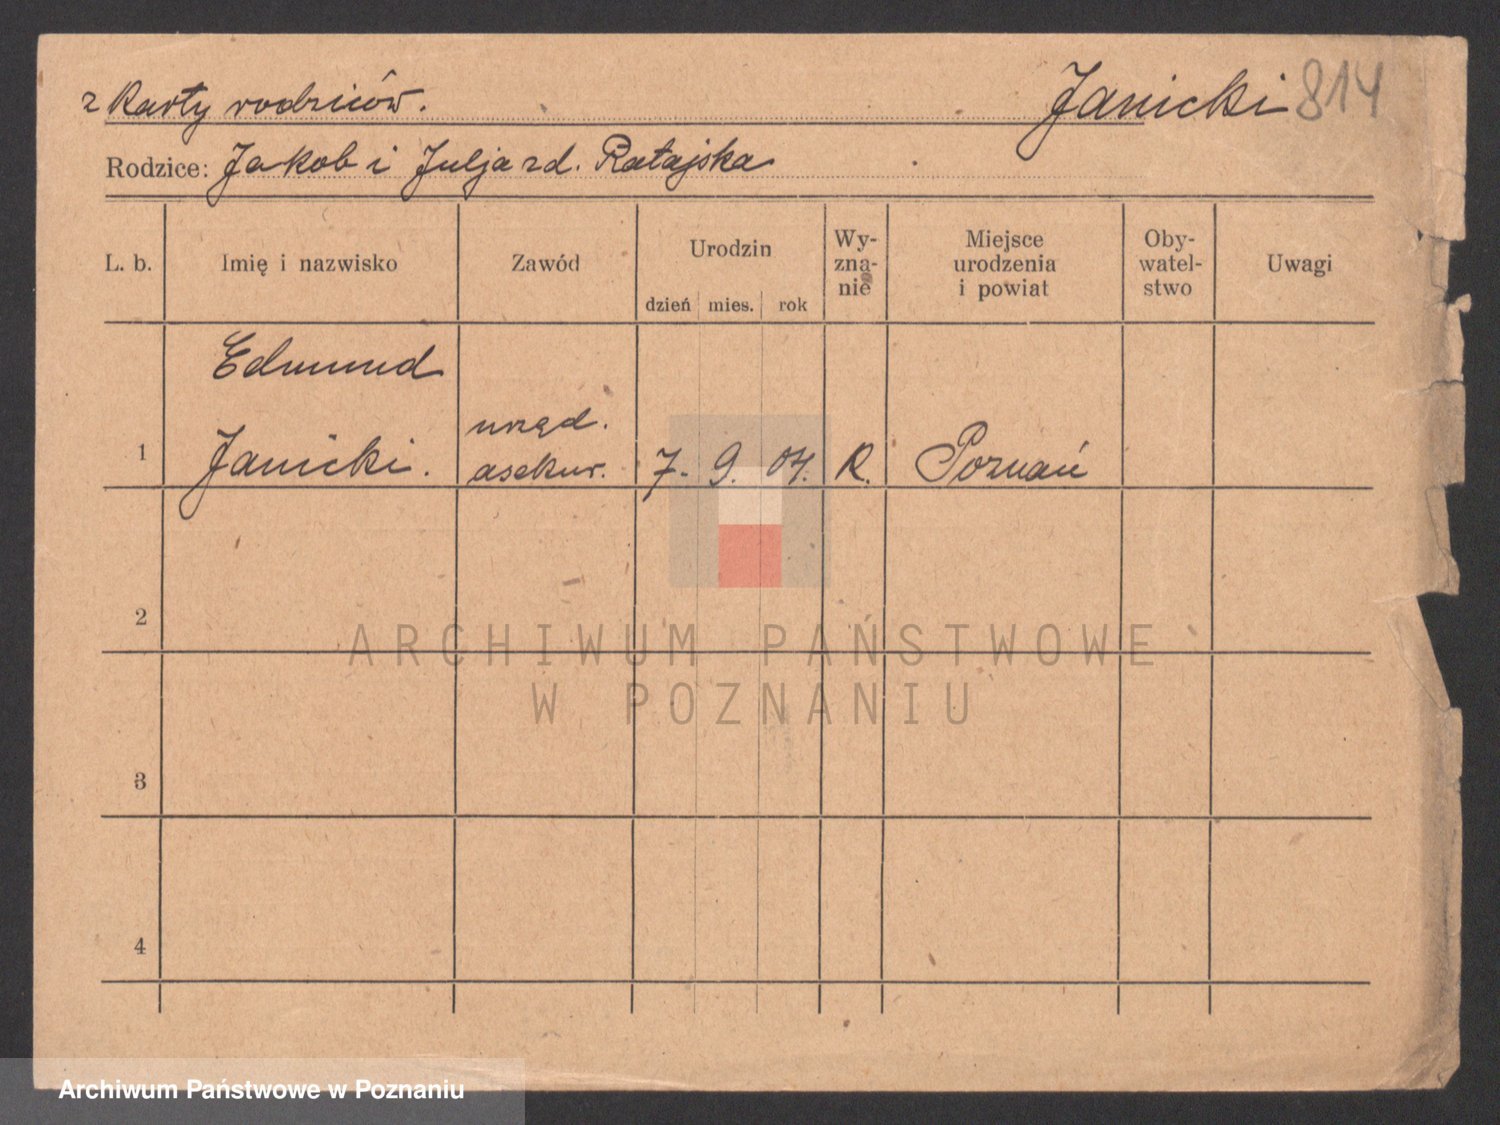 z Karty rodziców.
Janicki 814
Rodzice: Jakob i Julja zd. Ratajska
L. b. Imię i nazwisko Zawód Urodzin Wy-zna-nie Miejsce urodzenia i powiat Oby-watel-stwo Uwagi
dzień mies. rok
Edmund
urzęd.
1 Janicki. asekur. 7. 9. 04. R. Poznań
2
ARCHIWUM PAŃSTWOWE
W POZNANIU
3
4
Archiwum Państwowe w Poznaniu